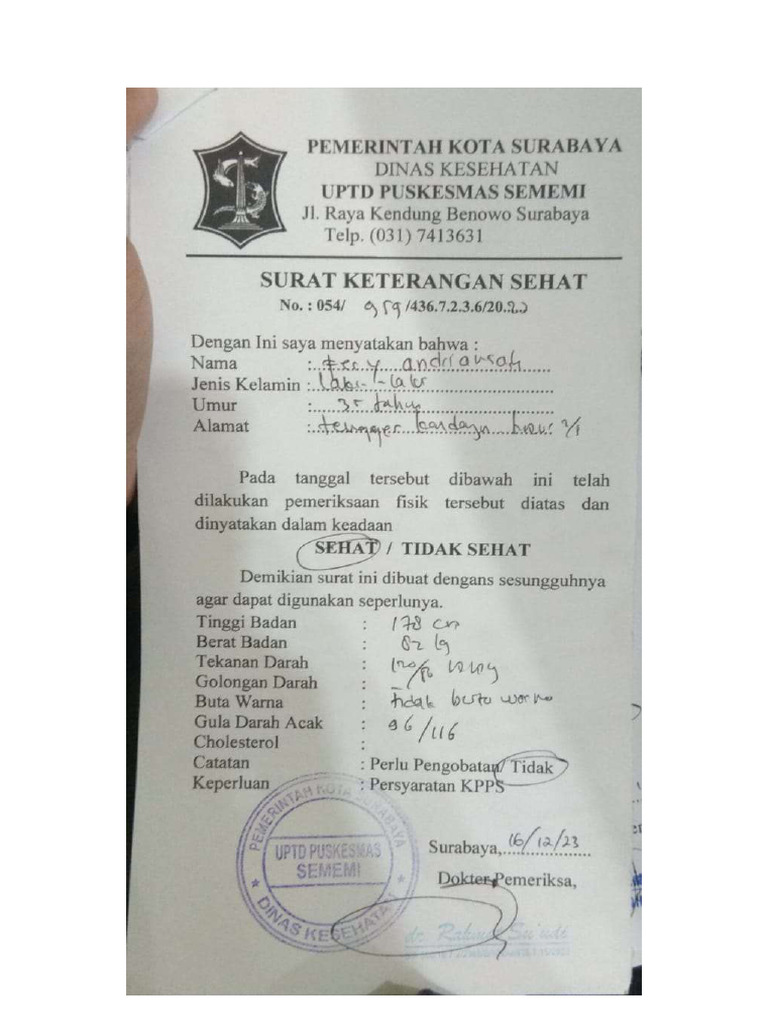 PEMERINTAH KOTA SURABAYA
DINAS KESEHATAN
UPTD PUSKESMAS SEMEMI
Jl. Raya Kendung Benowo Surabaya
Telp. (031) 7413631
SURAT KETERANGAN SEHAT
No. : 054/ 959 /436.7.2.3.6/20.
Dengan Ini saya menyatakan bahwa :
Nama : fery andriansah
Jenis Kelamin : laki-laki
Umur : 35 tahun
Alamat : tengger kandangan
Pada tanggal tersebut dibawah ini telah
dilakukan pemeriksaan fisik tersebut diatas dan
dinyatakan dalam keadaan
SEHAT / TIDAK SEHAT
Demikian surat ini dibuat dengans sesungguhnya
agar dapat digunakan seperlunya.
Tinggi Badan : 178 cm
Berat Badan : 82 kg
Tekanan Darah : mmHg
Golongan Darah : -
Buta Warna : tidak buta warna
Gula Darah Acak : 96/116
Cholesterol :
Catatan : Perlu Pengobatan/ Tidak
Keperluan : Persyaratan KPPS
PEMERINTAH KOTA SURABAYA
UPTD PUSKESMAS
SEMEMI
DINAS KESEHATAN
Surabaya, 16/12/23
Dokter Pemeriksa,
dr.